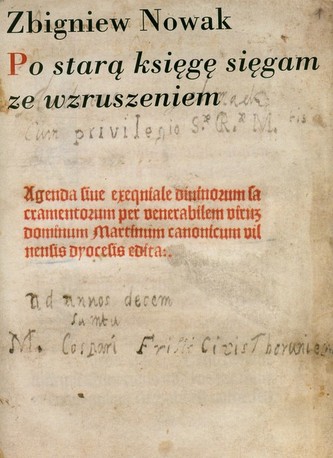 Zbigniew Nowak
Po starą księgę sięgam
ze wzruszeniem
Cum privilegio S. R. M.
Agenda siue exequiale diuinorum sa
cramentorum per venerabilem virum
dominum Martinum canonicum vil
nensis dyocesis edita:.
ad annos decem
sumtu
M. Caspari